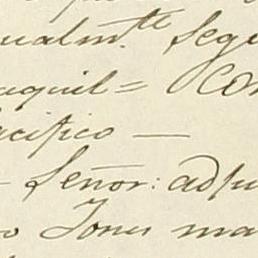 ualm.te Segu
uquil= Con
acifico —
— Señor: adju
o Jones ma